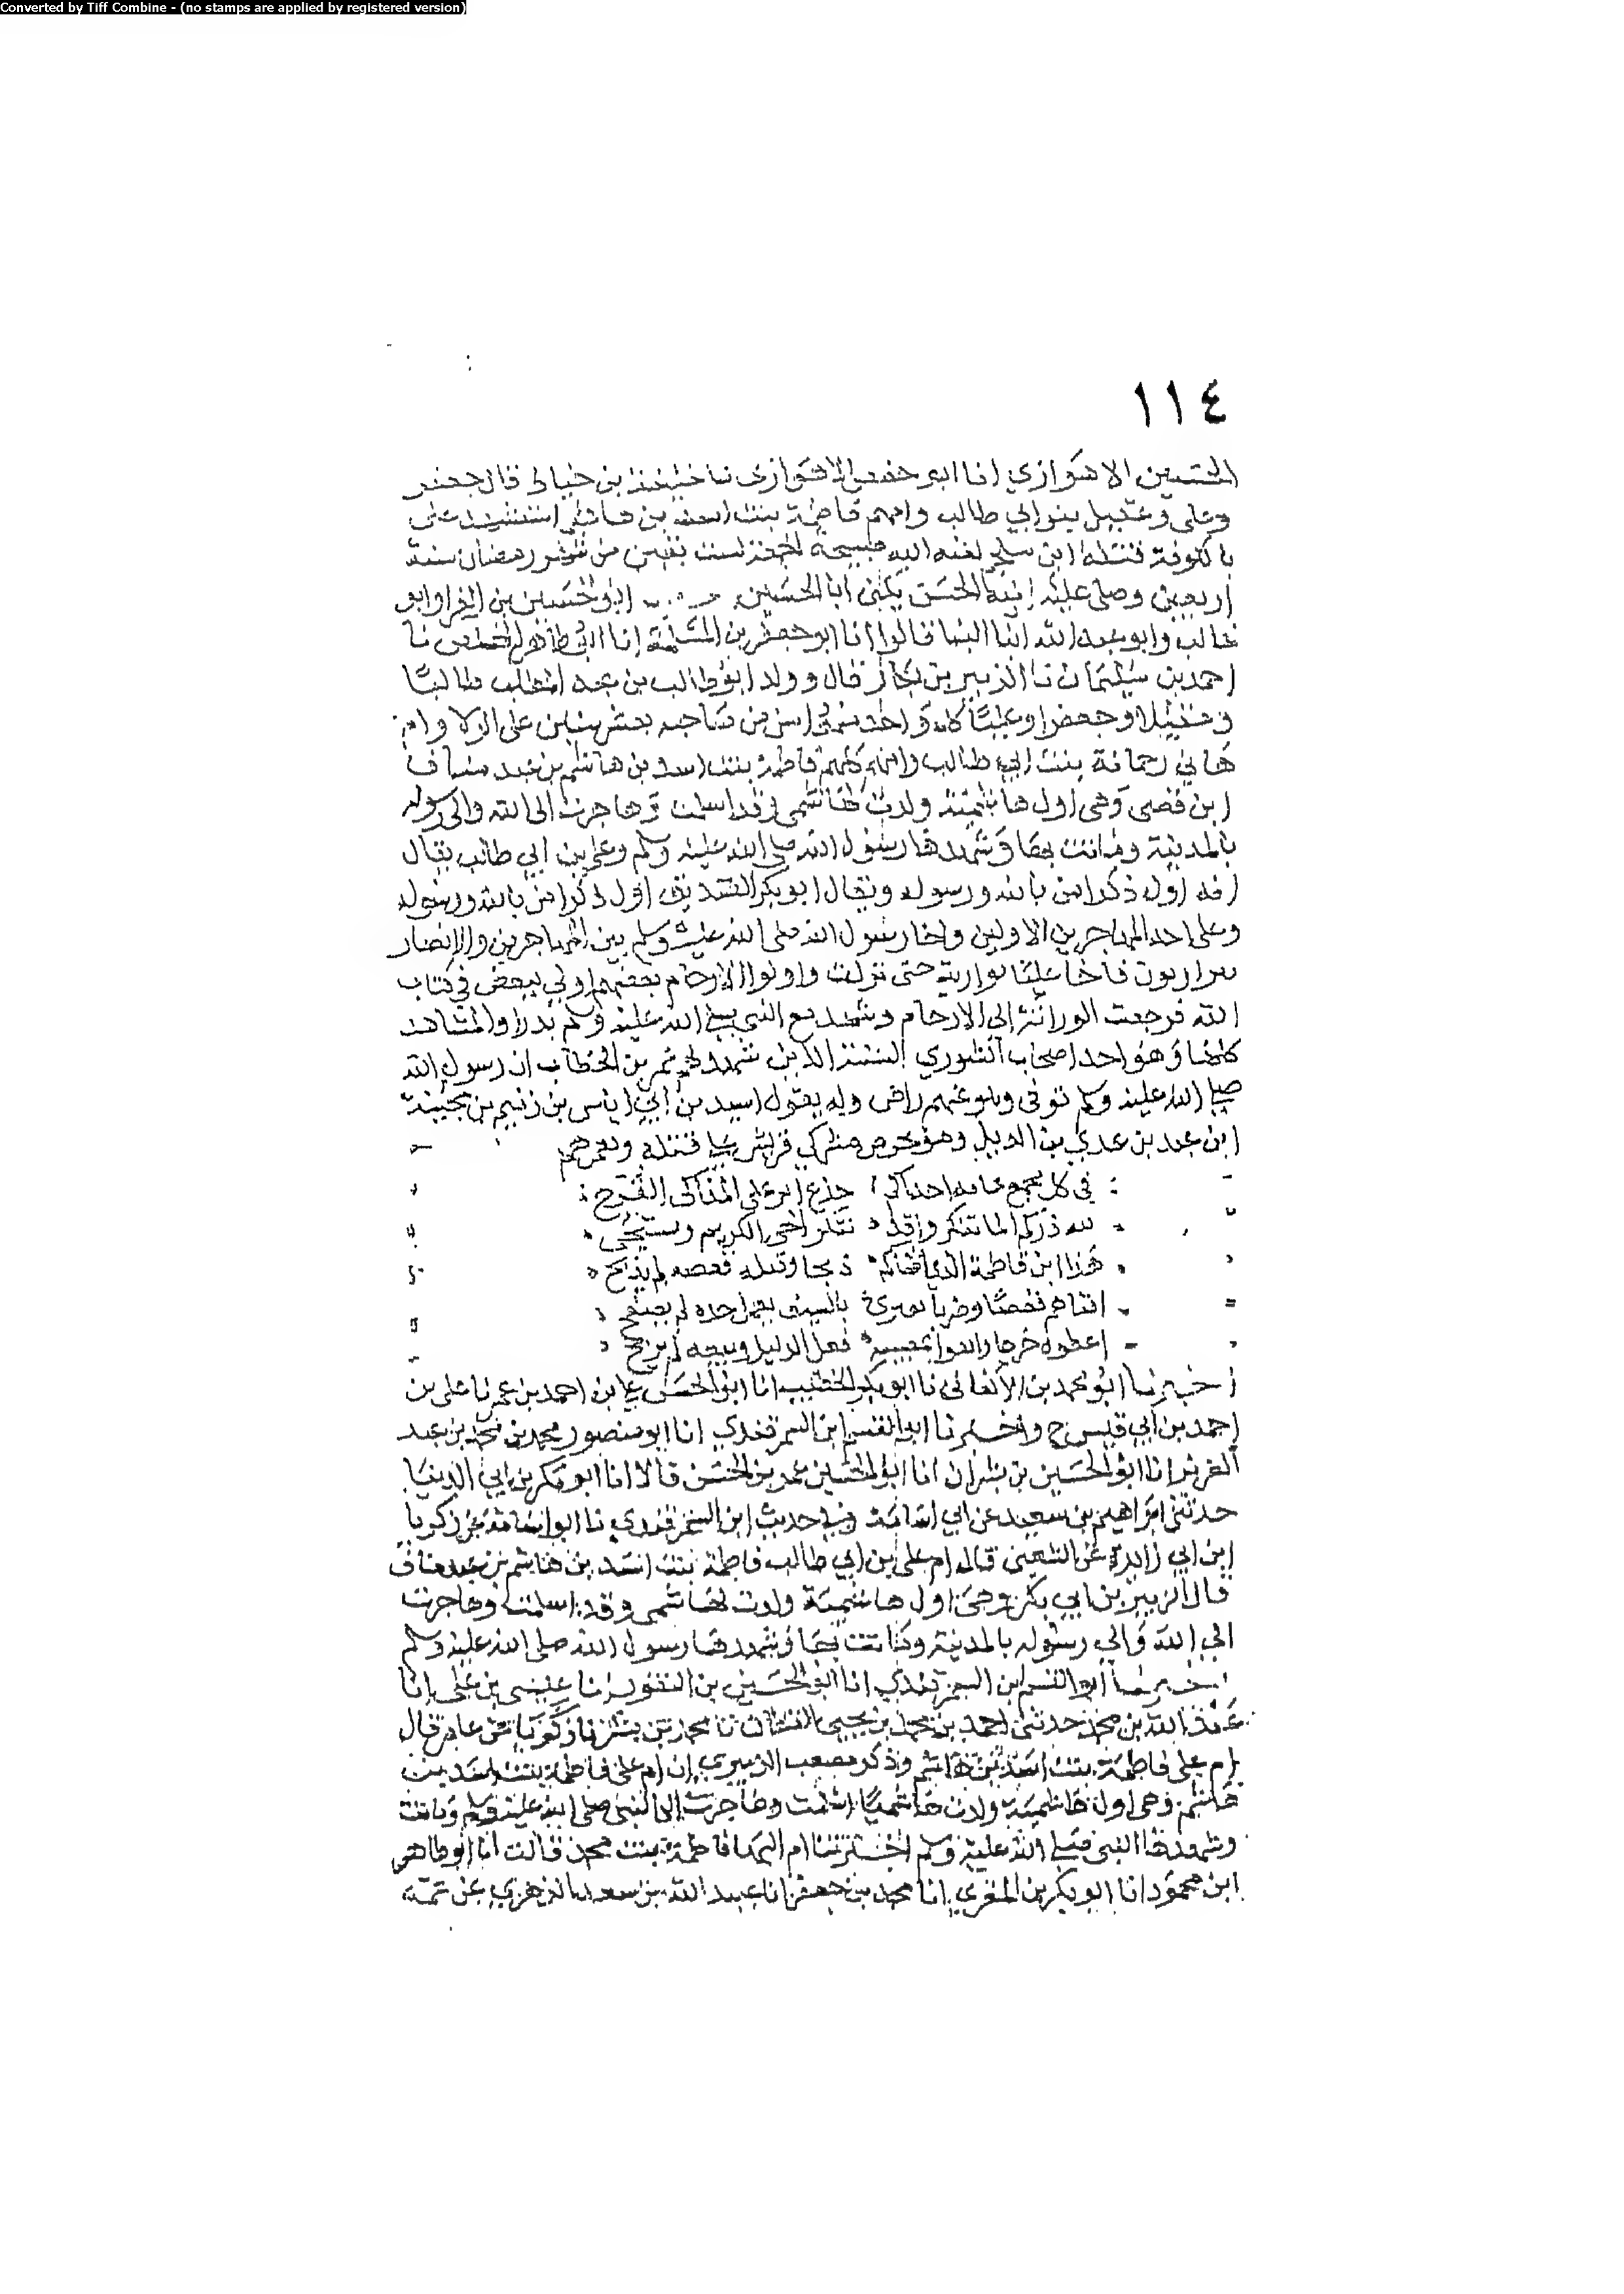 Converted by Tiff Combine - (no stamps are applied by registered version)
١١٤
الحسين الاهوازي انا ابو حفص الاهوازي نا خليفة بن خياط قال جعفر
وعلي وعقيل بنو ابي طالب وامهم فاطمة بنت اسد بن هاشم استشهد علي
بالكوفة قتله ابن ملجم لعنه الله صبيحة الجمعة لست بقين من شهر رمضان سنة
اربعين وصلى عليه ابنه الحسن يكنى ابا الحسين ابو الحسين بن الفرا وابو
غالب وابو عبد الله ابنا البنا قالوا انا ابو جعفر بن المسلمة انا ابو طاهر المخلص نا
احمد بن سليمان نا الزبير بن بكار قال وولد ابو طالب بن عبد المطلب طالبا
وعقيلا وجعفرا وعليا كل واحد منهم اسن من صاحبه بعشر سنين على الولا وام
هاني بنت ابي طالب وامهم كلهم فاطمة بنت اسد بن هاشم بن عبد مناف
ابن قصي وهي اول هاشمية ولدت لهاشمي وقد اسلمت وهاجرت الى الله والى رسوله
بالمدينة وماتت بها وشهدها رسول الله صلى الله عليه وسلم وعلي بن ابي طالب يقال
انه اول ذكر امن بالله ورسوله ويقال ابو بكر الصديق اول ذكر امن بالله ورسوله
وعلي احد المهاجرين الاولين واخا رسول الله صلى الله عليه وسلم بين المهاجرين والانصار
فاخا عليا حتى نزلت واولوا الارحام بعضهم اولى ببعض في كتاب
الله فرجعت الوراثة الى الارحام وشهد مع النبي صلى الله عليه وسلم بدرا والمشاهد
كلها وهو احد اصحاب الشوري الستة الذين شهد لهم عمر بن الخطاب ان رسول الله
صلى الله عليه وسلم توفى وهو عنهم راض وله يقول اسيد بن ابي اياس بن زنيم بن
ابن عبد بن عدي بن الديل وهو يحرض مشركي قريش على قتله ويعيرهم
في كل مجمع غاية اخزاكم جذع ابر على المذاكي القرح
لله دركم الما تنكروا قد ينكر الحي الكريم ويستحي
هذا ابن فاطمة الذي افناكم ذبحا وقتله قعصة لم يذبح
افناهم قعصا وضربا بالسيف يعمل حده لم يصفح
اعطوه خرجا واتقوا فعل الذليل وبيعة لم تربح
اخبرنا ابو محمد بن الاكفاني نا ابو بكر الخطيب انا ابو الحسن علي بن احمد بن عمر نا علي بن
احمد بن ابي قيس ح واخبرنا ابو القسم ابن السمرقندي انا ابو منصور محمد بن محمد بن عبد
العزيز انا ابو الحسين بن بشران انا ابو الحسين عمر بن الحسن قالا انا ابو بكر بن ابي الدنيا
حدثني ابراهيم بن سعيد عن ابي اسامة وفي حديث ابن السمرقندي نا ابو اسامة عن زكريا
ابن ابي زايدة عن الشعبي قال ام علي ابن ابي طالب فاطمة بنت اسد بن هاشم بن عبد مناف
قال الزبير بن ابي بكر وهي اول هاشمية ولدت لهاشمي وقد اسلمت وهاجرت
الى الله والى رسوله بالمدينة وماتت بها وشهدها رسول الله صلى الله عليه وسلم
اخبرنا ابو القسم ابن السمرقندي انا ابو الحسين بن النقور انا عيسى بن علي انا
عبد الله بن محمد حدثني احمد بن محمد بن يحيى القطان نا محمد بن بشر نا زكريا عن عامر قال
ام علي فاطمة بنت اسد بن هاشم وذكر مصعب الزبيري ان ام علي فاطمة بنت اسد بن
هاشم وهي اول هاشمية ولدت هاشميا اسلمت وهاجرت الى النبي صلى الله عليه وسلم وماتت
وشهدها النبي صلى الله عليه وسلم اخبرتنا ام البها فاطمة بنت محمد قالت انا ابو طاهر
ابن محمود انا ابو بكر بن المقري انا محمد بن جعفر انا عبيد الله بن سعد الزهري عن عمه